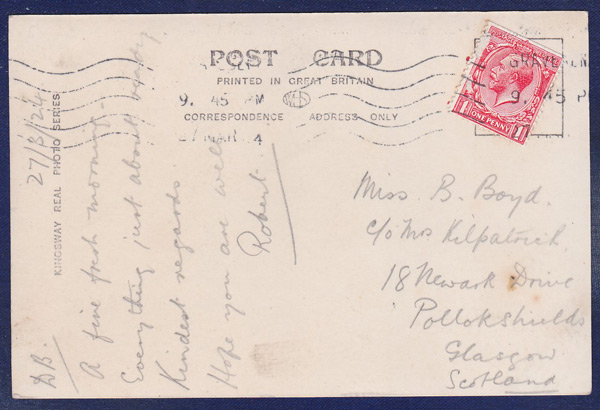 POST CARD
PRINTED IN GREAT BRITAIN
CORRESPONDENCE ADDRESS ONLY
9. 45 PM
MAR 4
GRAVE
9. 45 P
1 ONE PENNY 1
KINGSWAY REAL PHOTO SERIES
27/3/24
DB.
A fine fresh morning
Everything just about ready
Kindest regards
Hope you are well
Robert
Miss B. Boyd.
c/o Mrs Kilpatrick.
18 Newark Drive
Pollokshields
Glasgow
Scotland